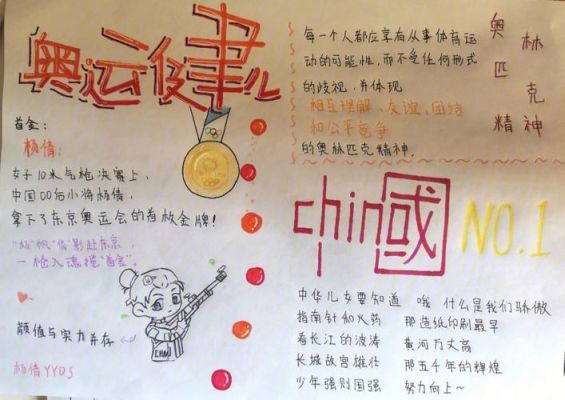 奥运健儿
首金:
杨倩:
女子10米气枪决赛上,
中国00后小将杨倩,
拿下了东京奥运会的首枚金牌!
一枪入魂揽"首金"。
颜值与实力并存
杨倩YYDS
CHINA
每一个人都应享有从事体育运
动的可能性,而不受任何形式
的歧视,并体现
相互理解、友谊、团结
和公平竞争
的奥林匹克精神.
奥林匹克精神
chin国
NO.1
中华儿女要知道 哦 什么是我们骄傲
指南针和火药 那造纸印刷最早
看长江的波涛 黄河万丈高
长城故宫雄壮 那五千年的辉煌
少年强则国强 努力向上~